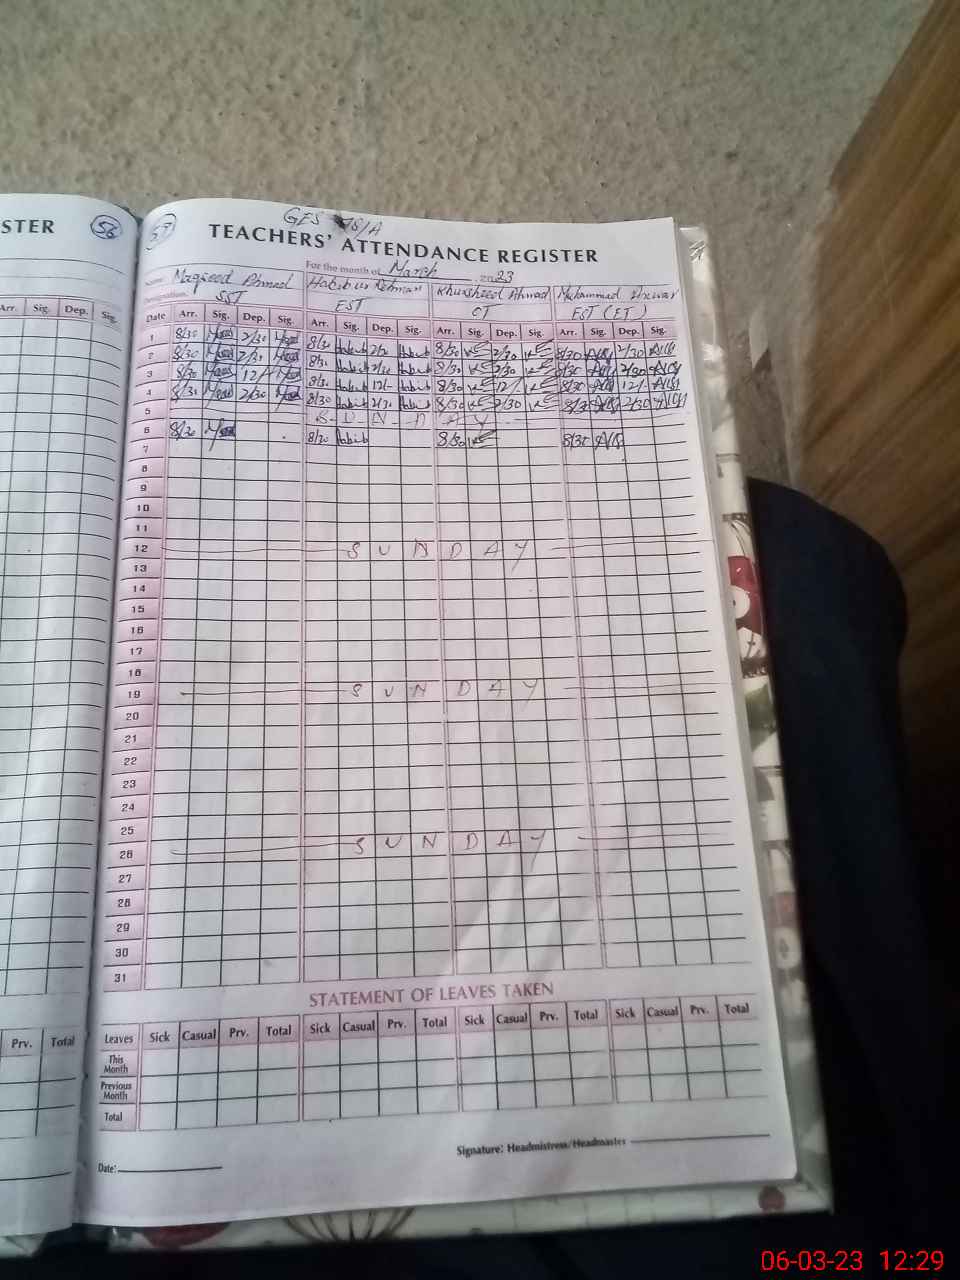 STER 56
57 GES 78/A
TEACHERS' ATTENDANCE REGISTER
For the month of March 2023
Name: Maqsood Ahmad Habib ur Rehman Khursheed Ahmad Muhammad Anwar
Designation: SST EST CT EST (ET)
Arr. Sig. Dep. Sig.
Date Arr. Sig. Dep. Sig. Arr. Sig. Dep. Sig. Arr. Sig. Dep. Sig. Arr. Sig. Dep. Sig.
1 8/30 2/30 8/30 Habib 2/30 Habib 8/30 2/30 8/30 2/30
2 8/30 2/31 8/31 Habib 2/30 Habib 8/30 2/30 8/30 2/30
3 8/30 12/- 8/30 Habib 12/- Habib 8/30 12/- 8/30 12/-
4 8/31 2/30 8/30 Habib 2/30 Habib 8/30 2/30 8/30 2/30
5 S U N D A Y
6 8/30 8/30 Habib 8/30 8/30
7
8
9
10
11
12 S U N D A Y
13
14
15
16
17
18
19 S U N D A Y
20
21
22
23
24
25
26 S U N D A Y
27
28
29
30
31
STATEMENT OF LEAVES TAKEN
Prv. Total
Leaves Sick Casual Prv. Total Sick Casual Prv. Total Sick Casual Prv. Total Sick Casual Prv. Total
This Month
Previous Month
Total
Signature: Headmistress/Headmaster
Date:
06-03-23 12:29